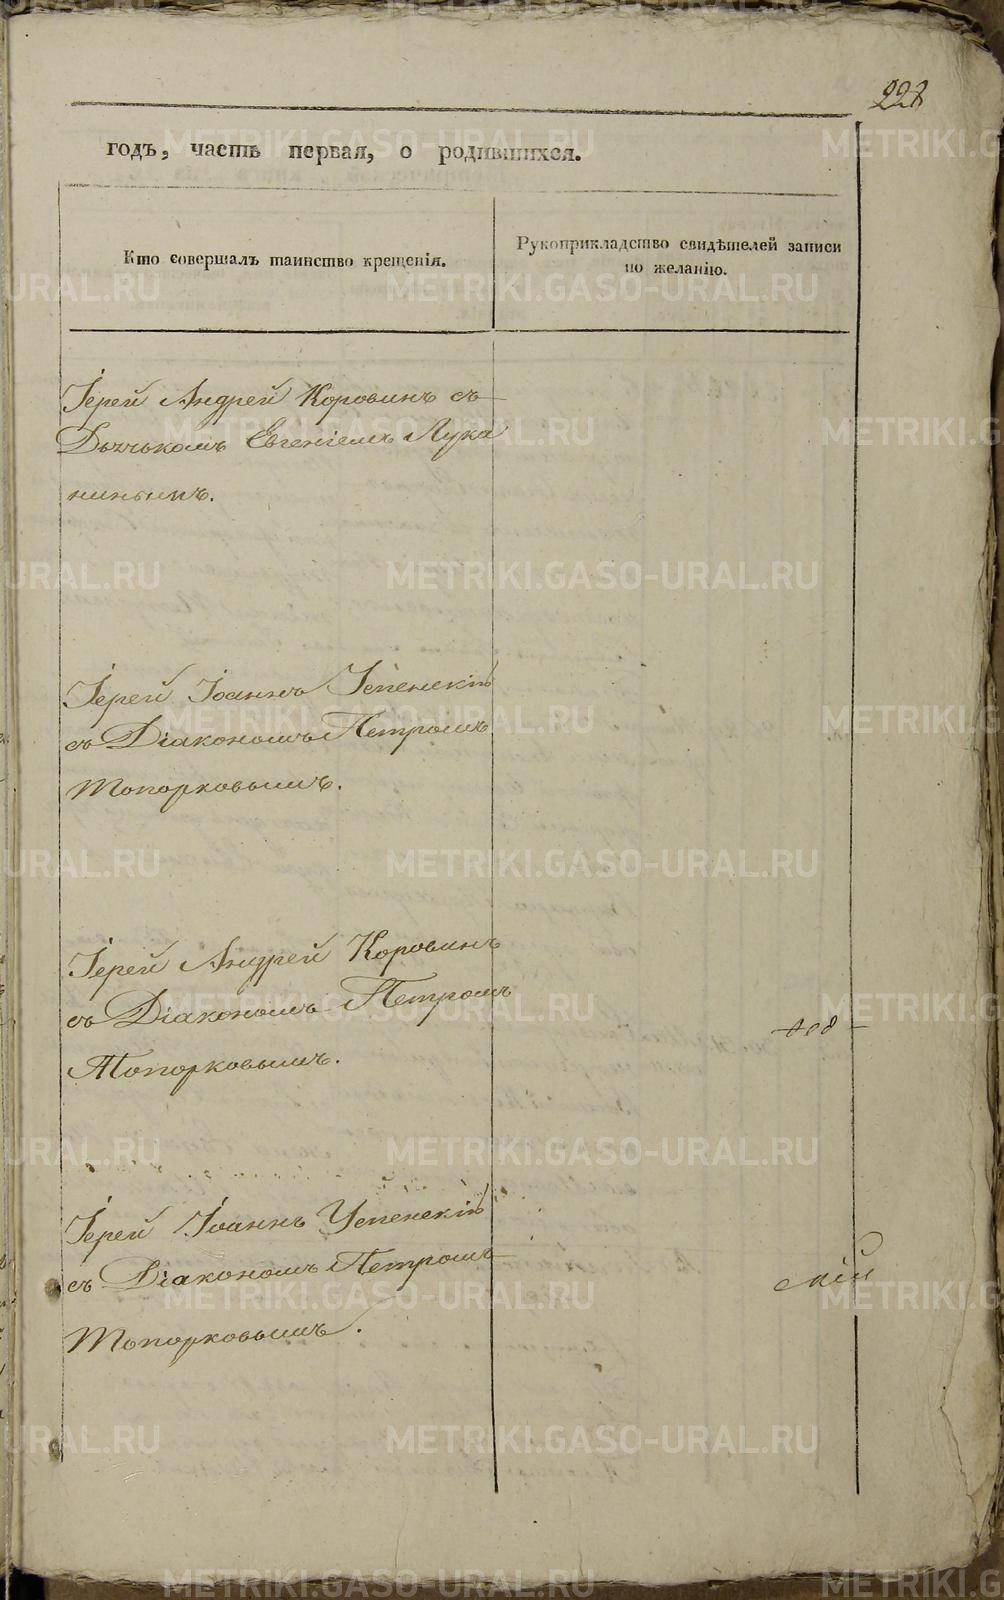 228
годъ, часть первая, о родившихся.
Кто совершалъ таинство крещенія.
Рукоприкладство свидѣтелей записи
по желанію.
Іерей Андрей Коровинъ съ
Дьячькомъ Евгеніемъ Лука
нинымъ.
Іерей Іоаннъ Успенскій
съ Діакономъ Петромъ
Топорковымъ.
Іерей Андрей Коровинъ
съ Діакономъ Петромъ
Топорковымъ.
Іерей Іоаннъ Успенскій
съ Діакономъ Петромъ
скій
Топорковымъ.
METRIKI.GASO-URAL.RU